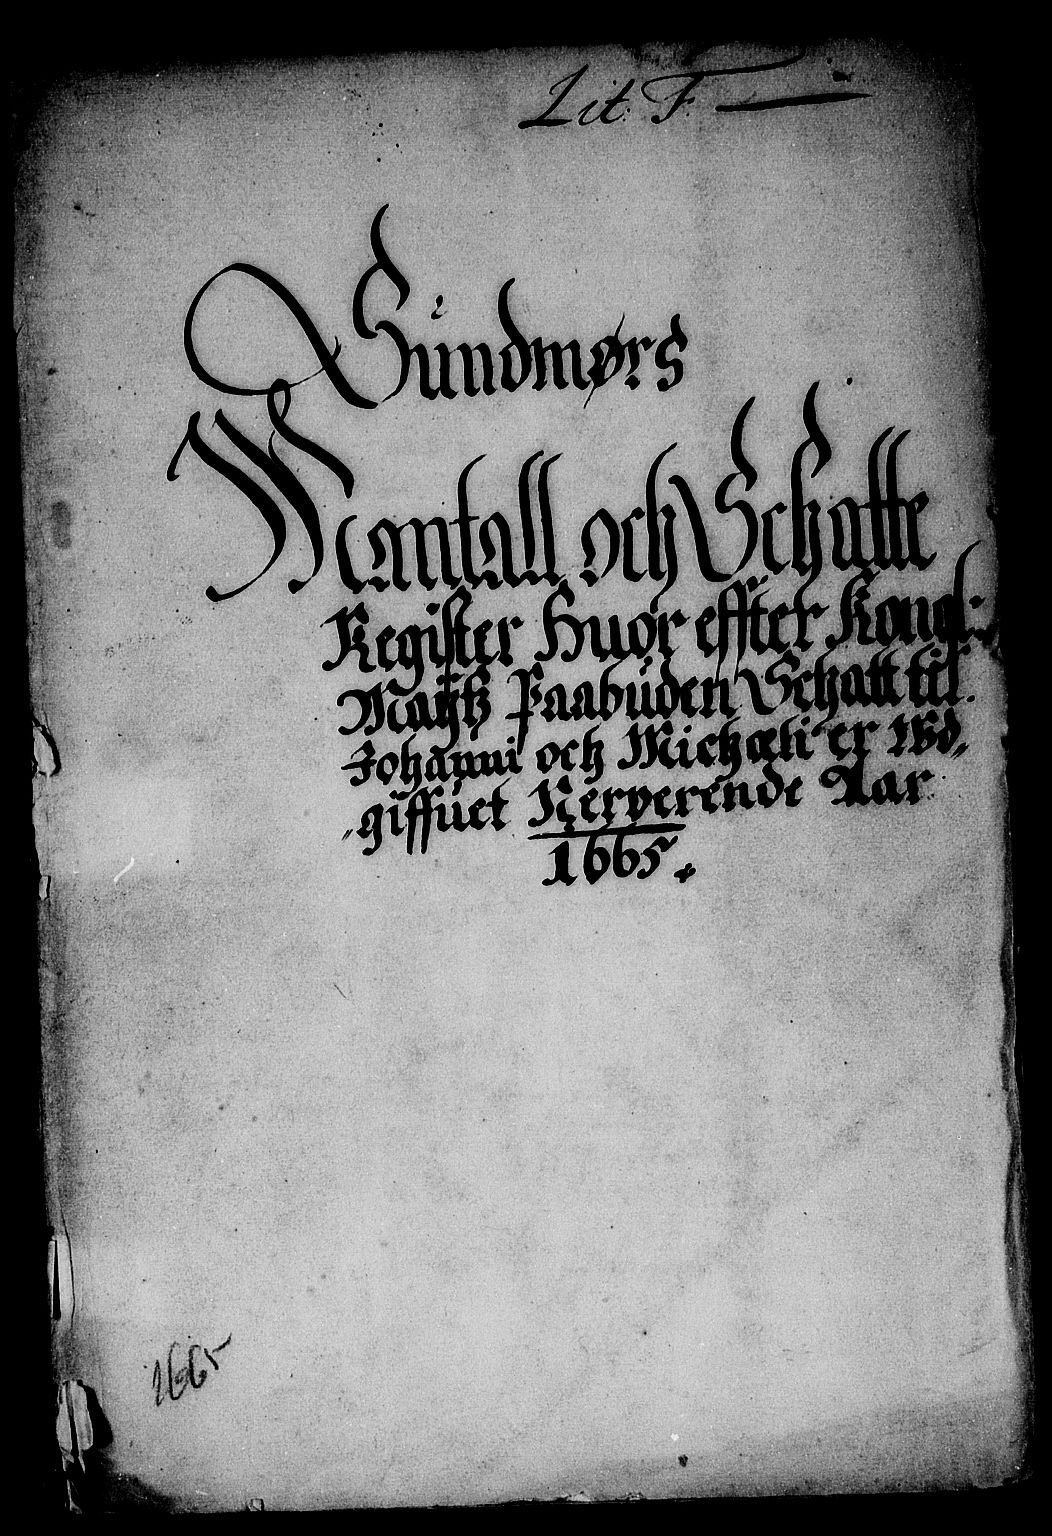 Lit: F.
Súndmørs
Mantall och Schatte
Register Huor effter Kongl:
Maÿtz Paabúden Schatt til
Johanni och Michæli er Wd,,
,,giffúet Nerverende Aar
1665.
1665